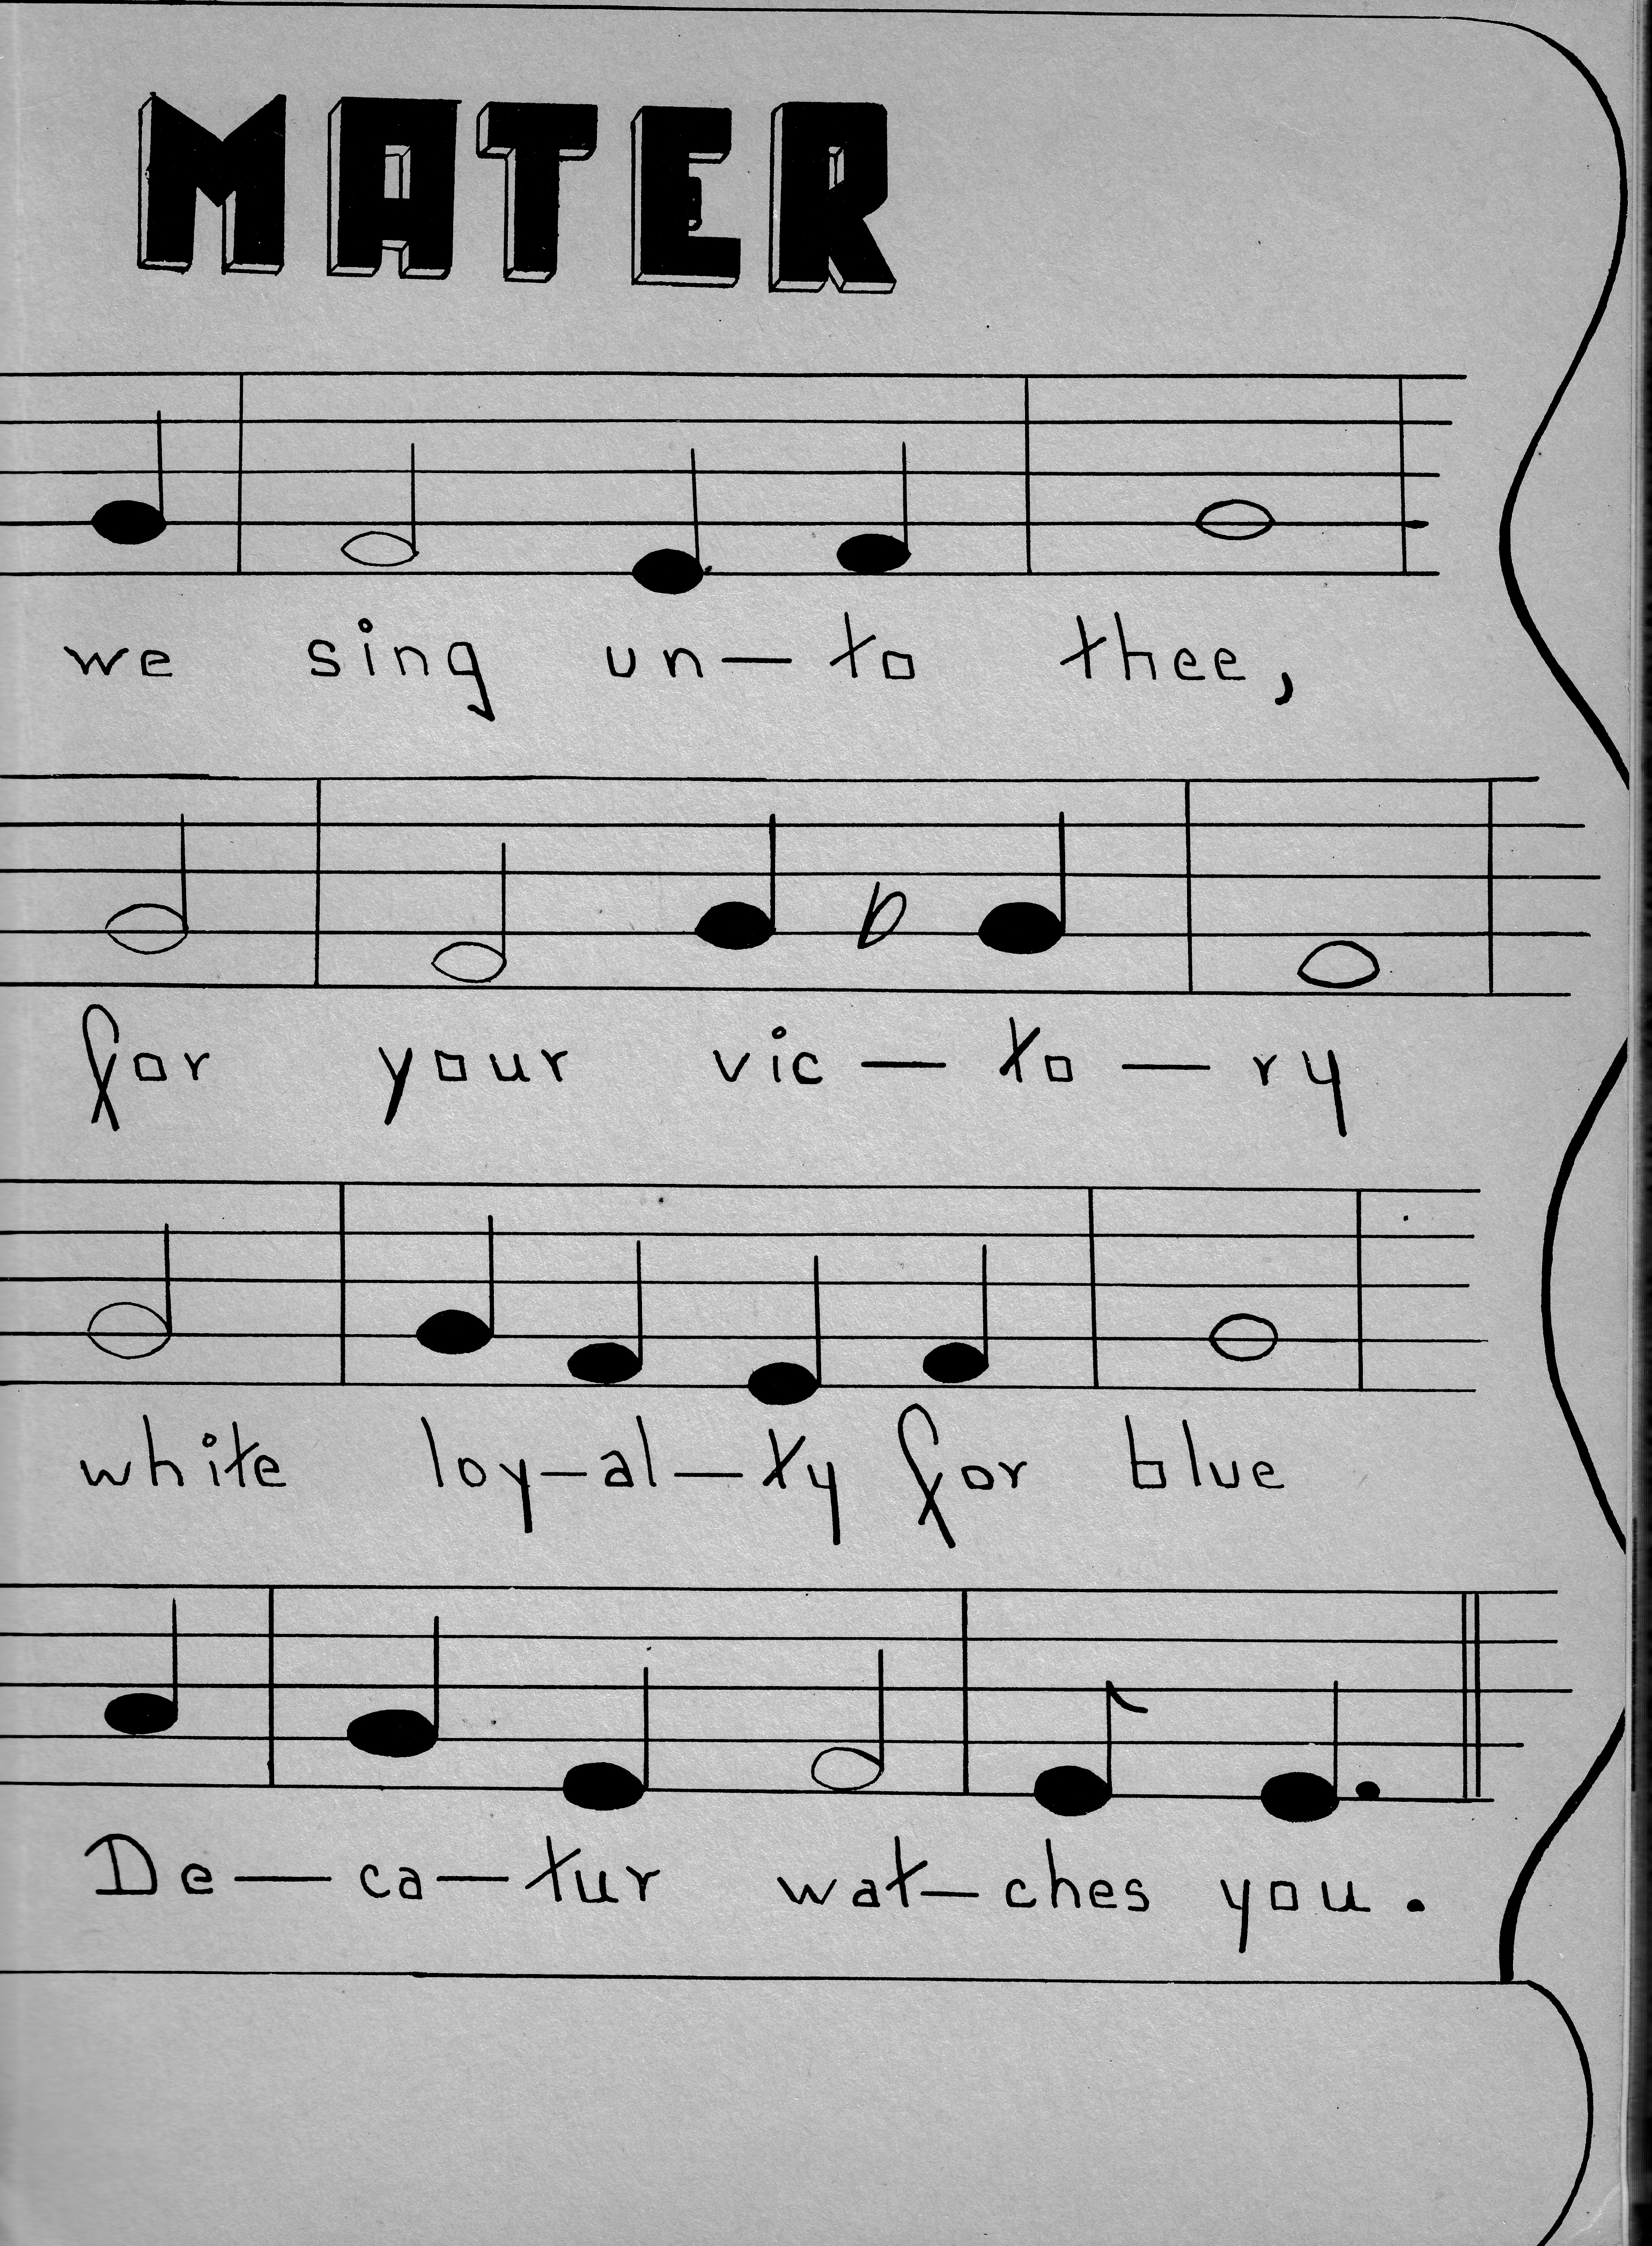 MATER
we sing un— to thee,
for your vic — to — ry
white loy—al—ty for blue
De—ca—tur wat—ches you.